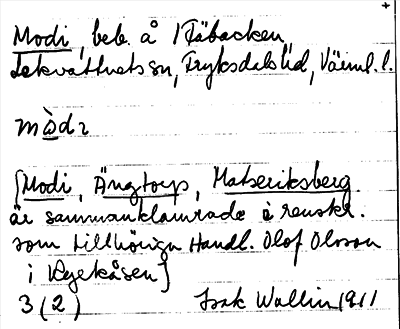 +
Modi, beb. å 1 Täbacken,
Lekvattnets sn, Fryksdals hd, Värml. l.
mòdı
[Modi, Ängtorp, Matseriksberg
är sammanklamrade i renskr.
som tillhörign Handl. Olof Olsson
i Kyrkåsen]
3 (2) Isak Wallin 1911